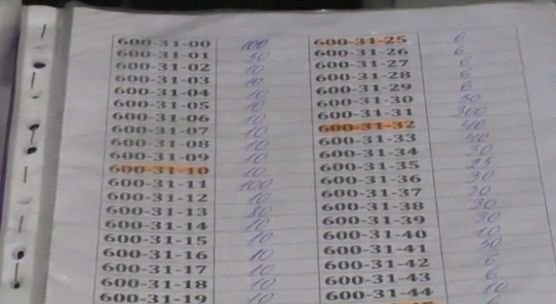 600-31-00 100
600-31-01 50
600-31-02 10
600-31-03 10
600-31-04 10
600-31-05 10
600-31-06 10
600-31-07 10
600-31-08 10
600-31-09 10
600-31-10 10
600-31-11 100
600-31-12 10
600-31-13
600-31-14 10
600-31-15 10
600-31-16 10
600-31-17 10
600-31-18 10
600-31-19 10
600-31-25 6
600-31-26 6
600-31-27 6
600-31-28 6
600-31-29 6
600-31-30 50
600-31-31 300
600-31-32 40
600-31-33 40
600-31-34 30
600-31-35 25
600-31-36 30
600-31-37 20
600-31-38 30
600-31-39 30
600-31-40 10
600-31-41 50
600-31-42 6
600-31-43 6
600-31-44 10